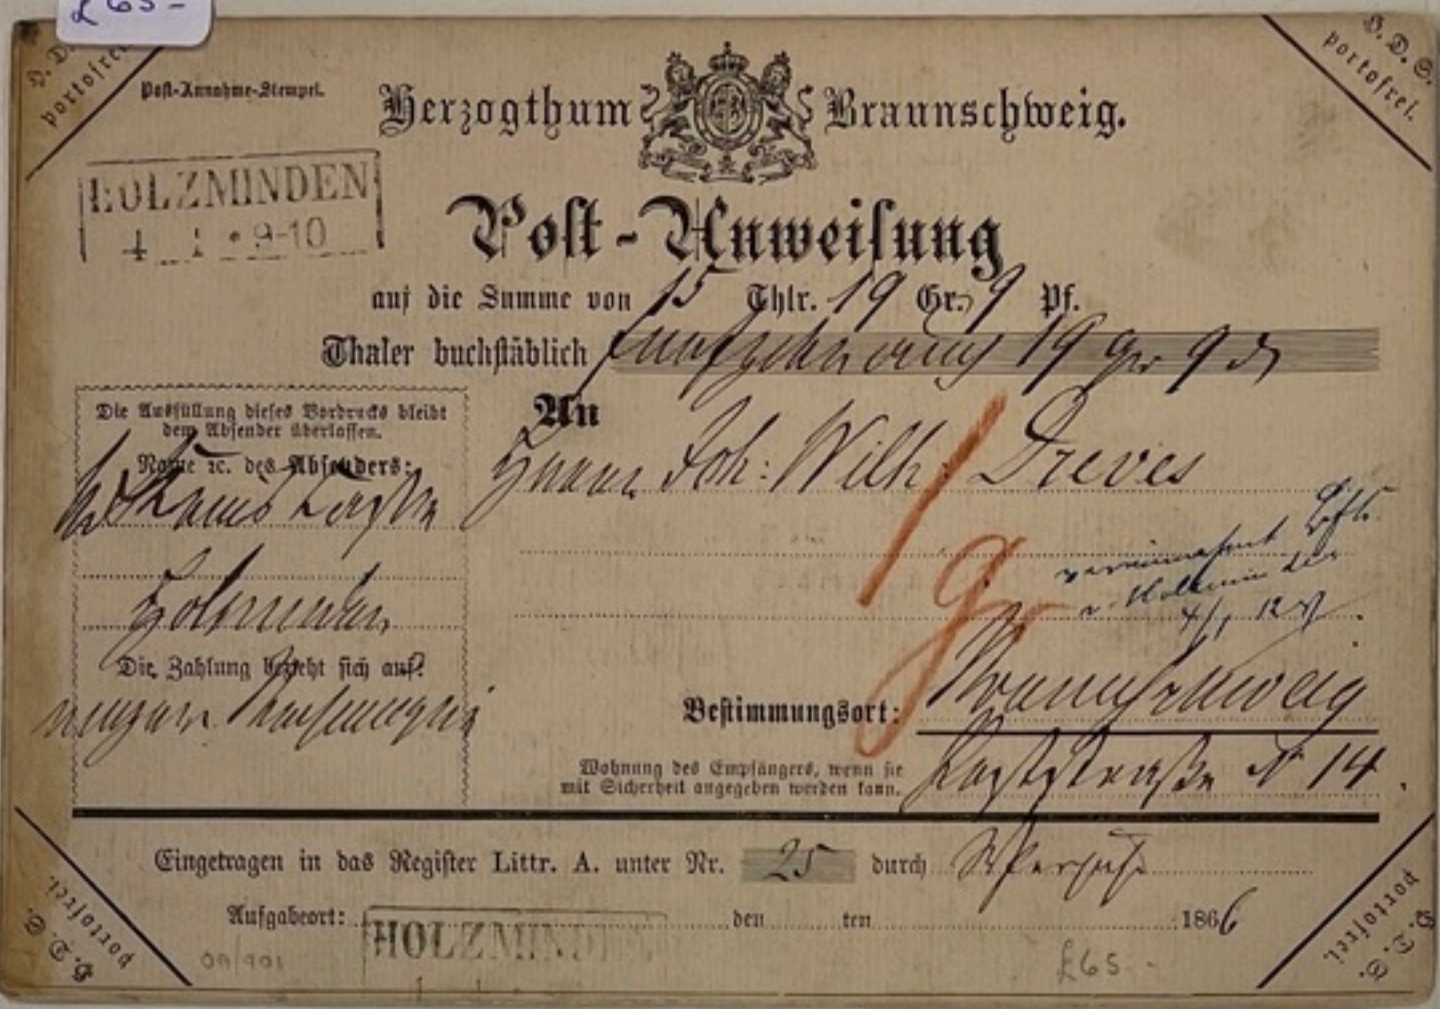 £65 -
H. D. S.
portofrei.
H. D. S.
portofrei.
Post-Annahme-Stempel.
Herzogthum Braunschweig.
HOLZMINDEN
4 1 * 9-10
Post-Anweisung
auf die Summe von 15 Thlr. 19 Gr. 9 Pf.
Thaler buchstäblich funfzehn auch 19 gr 9 d
Die Ausfüllung dieses Vordrucks bleibt
dem Absender überlassen.
Name ꝛc. des Absenders:
Holzminden
Die Zahlung bezieht sich auf:
An
Herrn Joh: Wilh: Dreves
1 gr
v. Holzminden
4/1 12 V
Bestimmungsort: Braunschweig
Wohnung des Empfängers, wenn sie
mit Sicherheit angegeben werden kann.
Poststraße N 14.
Eingetragen in das Register Littr. A. unter Nr. 25 durch
Aufgabeort: HOLZMINDEN den ten 1866
09/901
£65 -
H. D. S.
portofrei.
H. D. S.
portofrei.